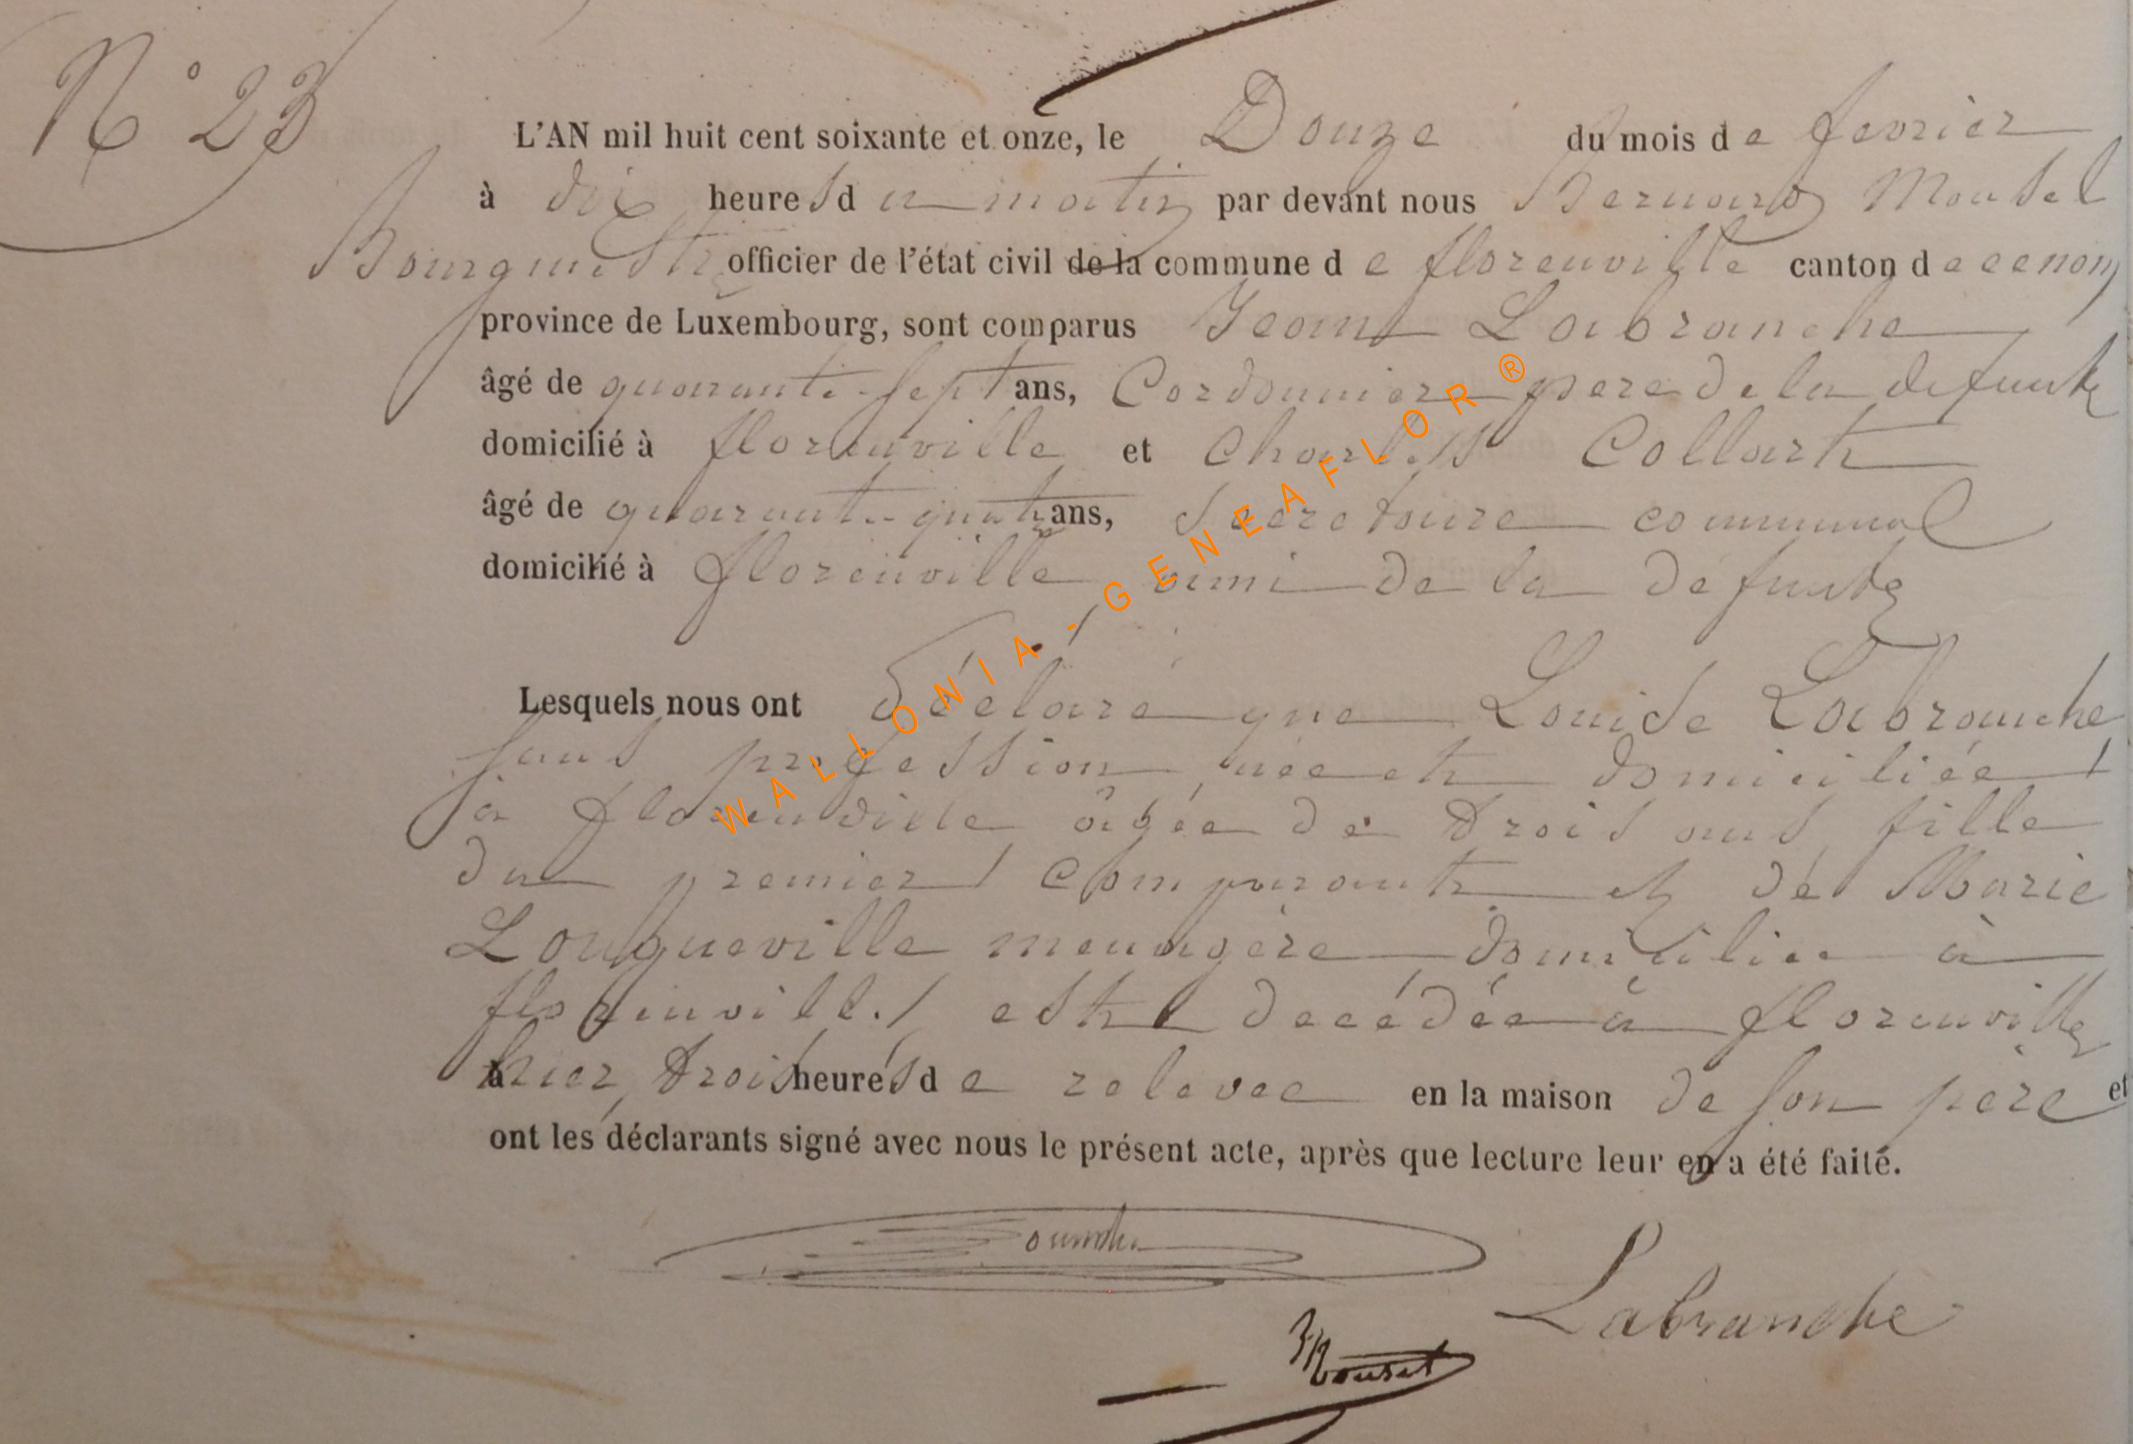 N° 23
L'AN mil huit cent soixante et onze, le Douze du mois de fevrier
à dix heures du matin par devant nous Bernard Mousel
Bourgmestre officier de l'état civil de la commune de florenville canton de
province de Luxembourg, sont comparus Jean Labranche
âgé de quarante-sept ans, Cordonnier pere de la defunte
domicilié à florenville et Charles Collart
âgé de quarante-quatre ans, Secretaire communal
domicilié à florenville, ami de la défunte
Lesquels nous ont déclaré que Louise Labranche
sans profession, née et domiciliée
à florenville âgée de trois ans fille
du premier comparant et de Marie
Longueville menagère domiciliée à
florenville est décédée à florenville
hier, trois heures de relevee en la maison de son père et
ont les déclarants signé avec nous le présent acte, après que lecture leur en a été faite.
Labranche
Mousel
WALLONIA-GENEAFLOR®